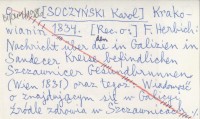 [SOCZYŃSKI Karol] Krako-
wianin 1834. [Rec. oz] F. Herbich:
Nachricht über die in Galizien im
Sandecer Kreise befindlichen
Szczawnicer Gesundbrunnen
(Wien 1831) oraz tegoż: Wiadomość
o znajdującym się w Galicy
źródle zdrowia w Szczawnicach